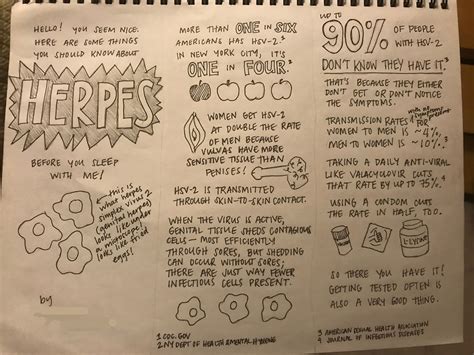 HELLO! YOU SEEM NICE.
HERE ARE SOME THINGS
YOU SHOULD KNOW ABOUT
HERPES
BEFORE YOU SLEEP
WITH ME!
this is
what herpes
simplex virus 2
(genital herpes)
looks like under
a microscope.
looks like fried
eggs!
by
MORE THAN ONE IN SIX
AMERICANS HAS HSV-2.¹
IN NEW YORK CITY, IT'S
ONE IN FOUR.²
WOMEN GET HSV-2
AT DOUBLE THE RATE
OF MEN BECAUSE
VULVAS HAVE MORE
SENSITIVE TISSUE THAN
PENISES!
HSV-2 IS TRANSMITTED
THROUGH SKIN-TO-SKIN CONTACT.
WHEN THE VIRUS IS ACTIVE,
GENITAL TISSUE SHEDS CONTAGIOUS
CELLS — MOST EFFICIENTLY
THROUGH SORES, BUT SHEDDING
CAN OCCUR WITHOUT SORES;
THERE ARE JUST WAY FEWER
INFECTIOUS CELLS PRESENT.
1 CDC.GOV
2 NY DEPT OF HEALTH & MENTAL HYGIENE
UP TO
90% OF PEOPLE
WITH HSV-2
DON'T KNOW THEY HAVE IT.³
THAT'S BECAUSE THEY EITHER
DON'T GET OR DON'T NOTICE
THE SYMPTOMS.
TRANSMISSION RATES FOR
WOMEN TO MEN IS ~4%,
MEN TO WOMEN IS ~10%.³
TAKING A DAILY ANTI-VIRAL
LIKE VALACYCLOVIR CUTS
THAT RATE BY UP TO 75%.⁴
USING A CONDOM CUTS
THE RATE IN HALF, TOO.
LYSINE
SO THERE YOU HAVE IT!
GETTING TESTED OFTEN IS
ALSO A VERY GOOD THING.
3 AMERICAN SEXUAL HEALTH ASSOCIATION
4 JOURNAL OF INFECTIOUS DISEASES